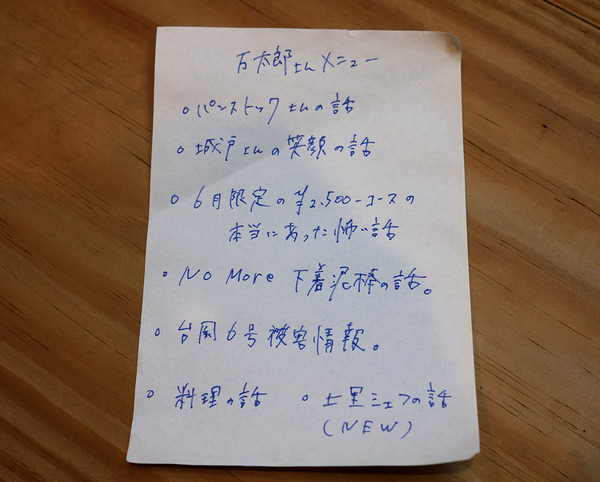 万太郎さんメニュー
○パンストックさんの話
○城戸さんの笑顔の話
○6月限定の¥2,500-コースの
本当にあった怖い話
○NO MORE 下着泥棒の話。
○台風6号被害情報。
○料理の話 ○土里シェフの話
(NEW)